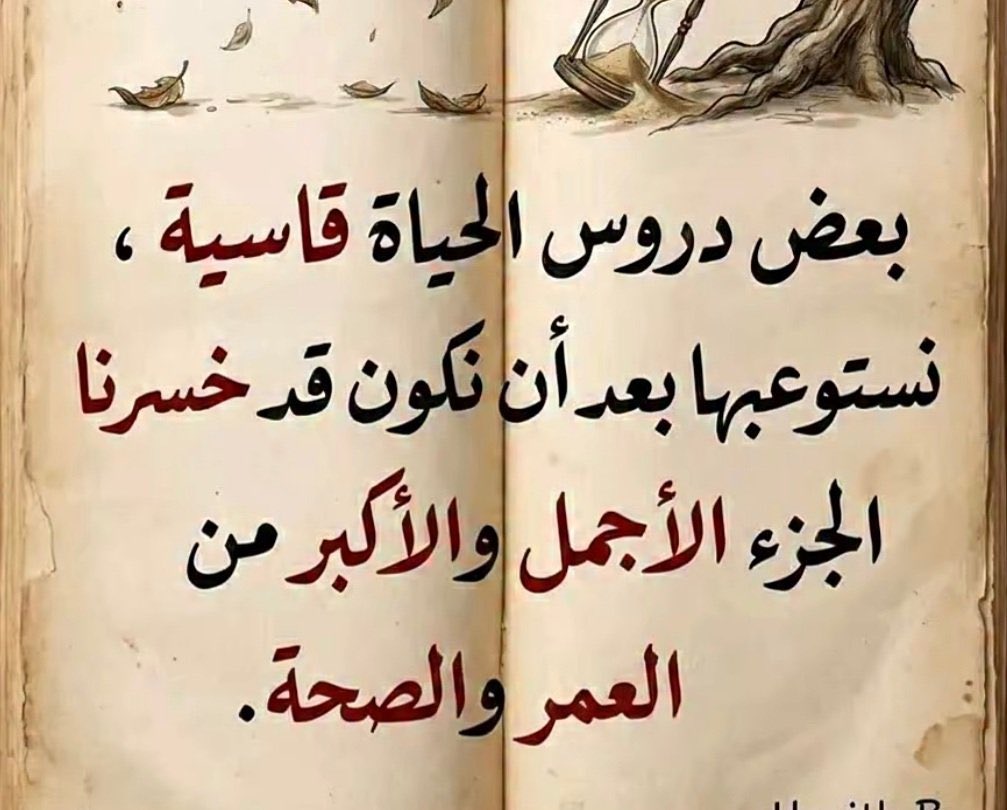 بعض دروس الحياة قاسية ،
نستوعبها بعد أن نكون قد خسرنا
الجزء الأجمل والأكبر من
العمر والصحة.